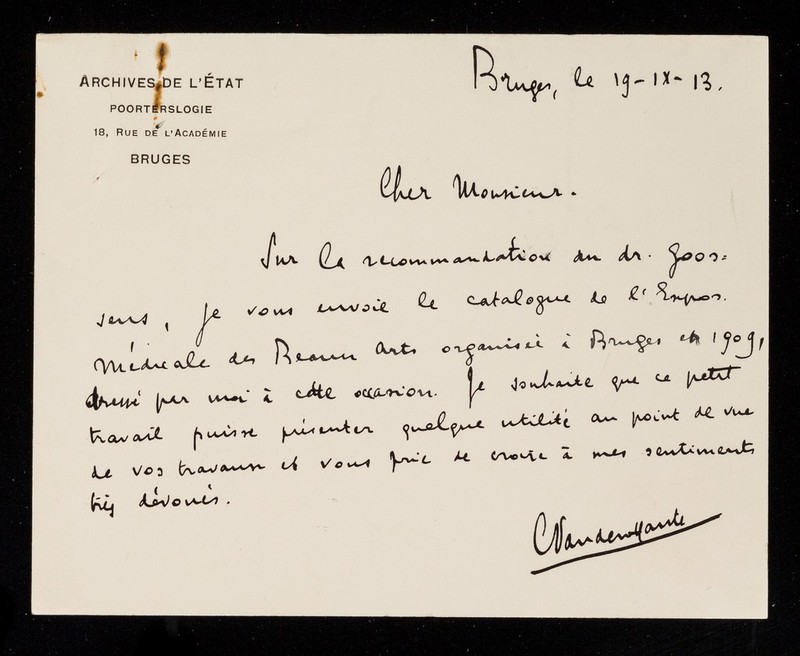 ARCHIVES DE L'ÉTAT
POORTERSLOGIE
18, RUE DE L'ACADÉMIE
BRUGES
Bruges, le 19-IX-13.
Cher Monsieur.
Sur la recommandation du dr. Goos=
sens, je vous envoie le catalogue de l'Expos.
Médicale des Beaux Arts organisée à Bruges en 1909,
dressé par moi à cette occasion. Je souhaite que ce petit
travail puisse présenter quelque utilité au point de vue
de vos travaux et vous prie de croire à mes sentiments
très dévoués.